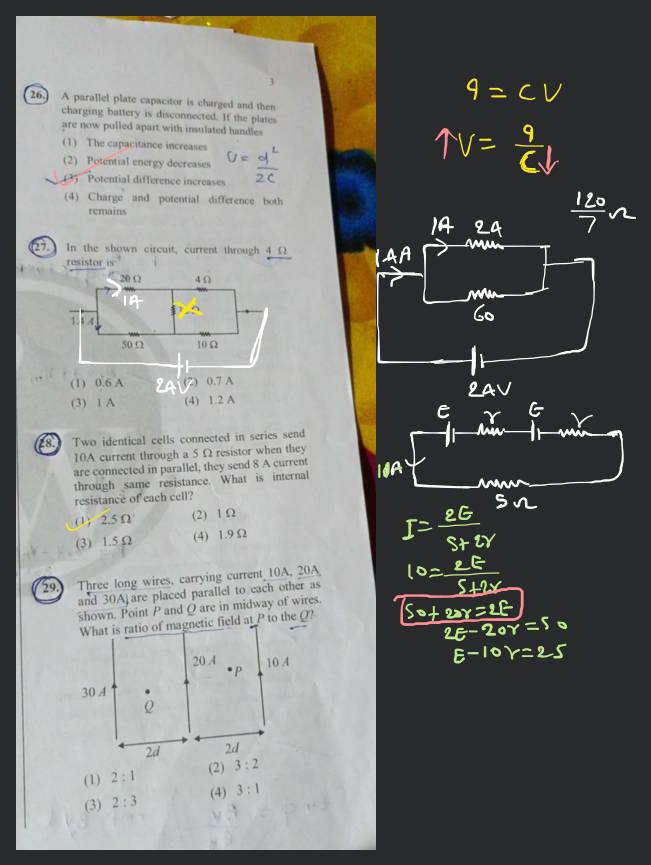 3
26. A parallel plate capacitor is charged and then
charging battery is disconnected. If the plates
are now pulled apart with insulated handles
(1) The capacitance increases
(2) Potential energy decreases
(3) Potential difference increases
(4) Charge and potential difference both
remains
U = q²/2C
27. In the shown circuit, current through 4 Ω
resistor is
20 Ω 4 Ω
1A
1.4 A
50 Ω 10 Ω
24V
(1) 0.6 A (2) 0.7 A
(3) 1 A (4) 1.2 A
28. Two identical cells connected in series send
10A current through a 5 Ω resistor when they
are connected in parallel, they send 8 A current
through same resistance. What is internal
resistance of each cell?
(1) 2.5 Ω (2) 1 Ω
(3) 1.5 Ω (4) 1.9 Ω
29. Three long wires, carrying current 10A, 20A
and 30A, are placed parallel to each other as
shown. Point P and Q are in midway of wires.
What is ratio of magnetic field at P to the Q?
30 A Q 20 A P 10 A
2d 2d
(1) 2 : 1 (2) 3 : 2
(3) 2 : 3 (4) 3 : 1
q = CV
↑V = q/C↓
120/7 Ω
1A 24
1.4A
60
24V
E r E r
10A
5Ω
I = 2E/5+2r
10 = 2E/5+2r
50+20r=2E
2E-20r=50
E-10r=25